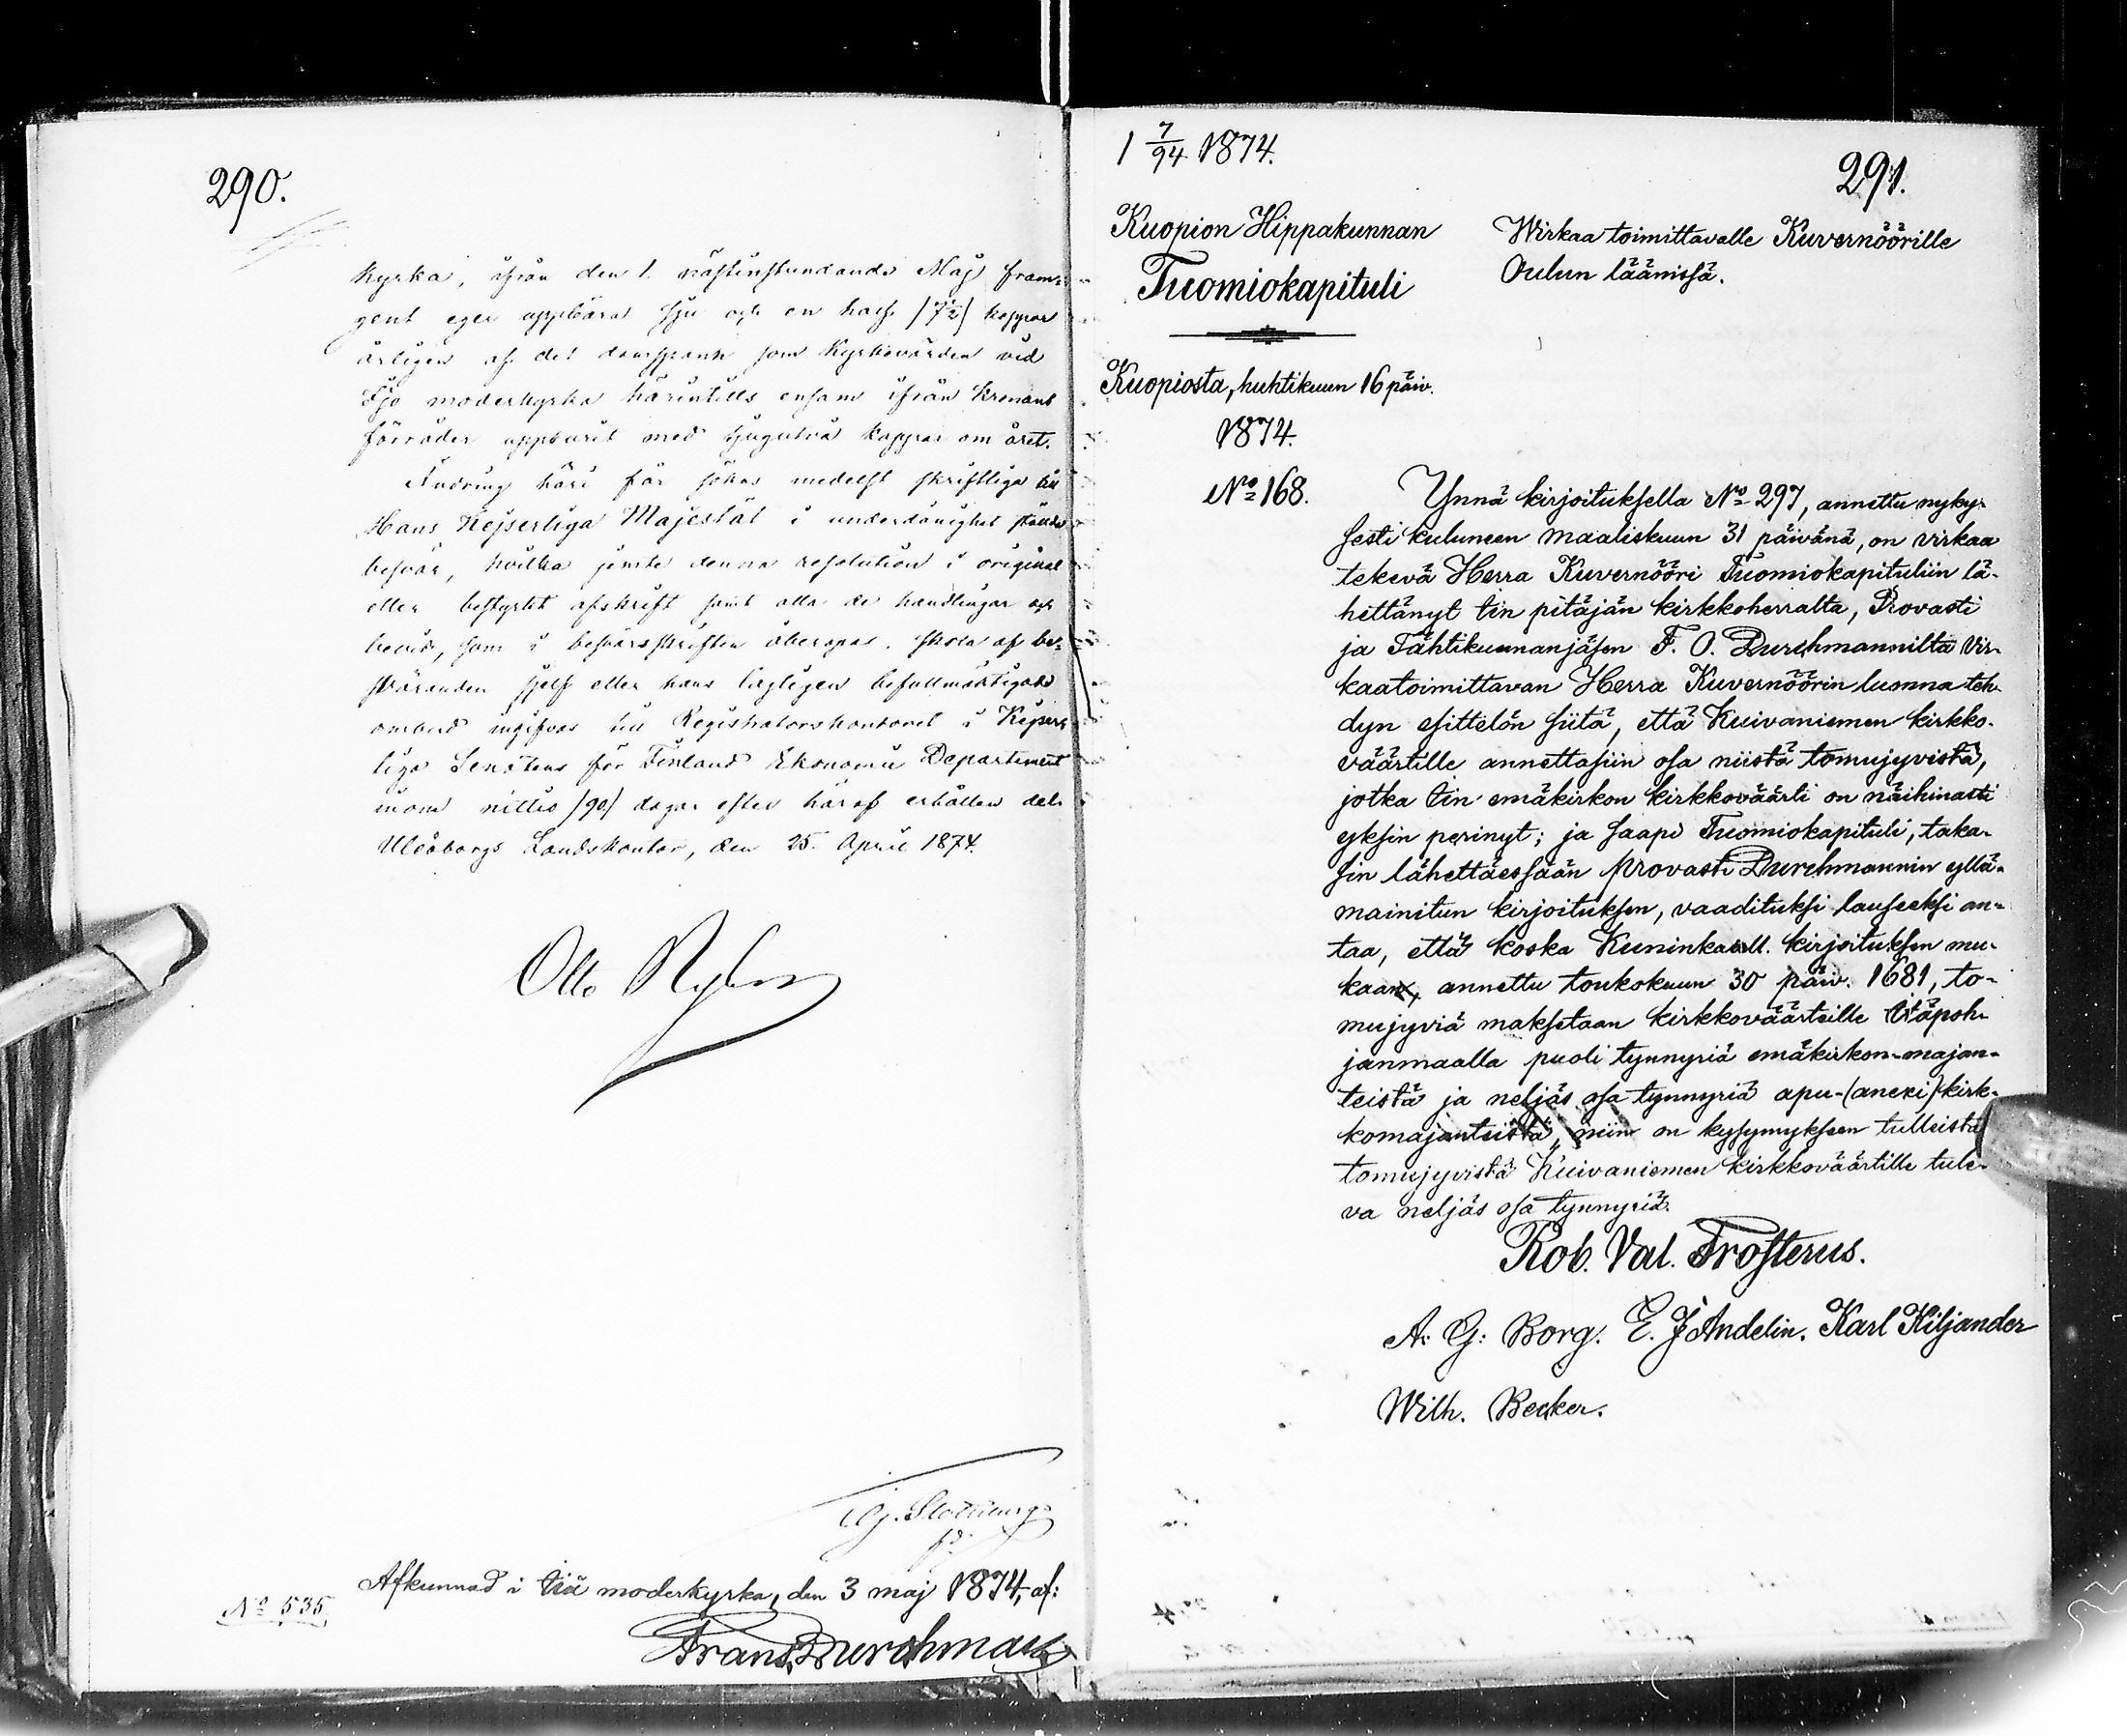 290.
kyrka, ifrån den 1. nästinstundande Maj fram-
gent eger uppbära sju och en half /7½/ kappar
årligen af det domspank som Kyrkovärden vid
Ijo moderkyrka härintills ensam ifrån Kronans
förråder uppburit med tjugutvå kappar om året.
Ändring häri får sökas medelst skriftliga till
Hans Kejserliga Majestät i underdånighet ställde
besvär, hvilka jemte denna resolution i original
eller bestyrkt afskrift samt alla de handlingar och
bevis, som i besvärsskriften åberopas, skola af be-
sväranden sjelf eller hans lagligen befullmäktigade
ombud ingifvas till Registratorskontoret i Kejser-
liga Senatens för Finland Ekonomie Departement
inom nittio /90/ dagar efter häraf erhållen del.
Uleåborgs Landskontor, den 25. April 1874.
Otto Nyberg
Afkunnad i Iiå moderkyrka, den 3 maj 1874, af:
No 535
Frans Durchman
1 7/94 1874.
291.
Kuopion Hippakunnan
Tuomiokapituli
Wirkaa toimittavalle Kuvernöörille
Oulun läänissä.
Kuopiosta, huhtikuun 16 päiv.
1874.
No 168.
Ynnä kirjoituksella No 297, annettu nyky-
sesti kuluneen maaliskuun 31 päivänä, on virkaa
tekevä Herra Kuvernööri Tuomiokapituliin lä-
hettänyt Iin pitäjän kirkkoherralta, Provasti
ja Tähtikunnanjäsen F. O. Durchmannilta Vir-
kaatoimittavan Herra Kuvernöörin luonna teh-
dyn esittelön siitä, että Kuivaniemen kirkko-
väärtille annettasiin osa niistä tomujyvistä,
jotka Iin emäkirkon kirkkoväärti on näihinasti
yksin perinyt; ja saapi Tuomiokapituli, taka-
sin lähettäessään Provasti Durchmannin yllä-
mainitun kirjoituksen, vaadituksi lauseeksi an-
taa, että koska Kuninkaall. kirjoituksen mu-
kaan, annettu toukokuun 30 päiv. 1681, to-
mujyviä maksetaan kirkkoväärteille Itäpoh-
janmaalla puoli tynnyriä emäkirkon-majan-
teistä ja neljäs osa tynnyriä apu-(anexi)-kirk-
komajanteista, niin on kysymykseen tulleista
tomujyvistä Kuivaniemen kirkkoväärtille tule-
va neljäs osa tynnyriä.
Rob. Val. Frosterus.
A. G. Borg. E. J Andelin. Karl Kiljander
Wilh. Becker.